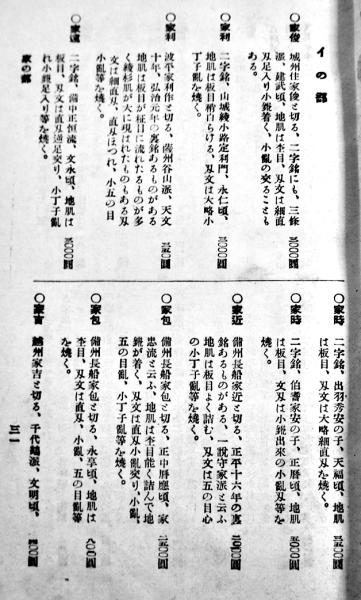 イの部
○家俊 三〇〇〇圓
城州住家俊と切る、二字銘にも、三條
派、建武頃、地肌は杢目、刄文は細直
刄足入り小錵着く、小亂の交ることも
ある。
○家利 三〇〇〇圓
二字銘、山城綾小路定利門、永仁頃、
地肌は板目梢山らげる、刄文は大略小
丁子亂を燒く。
○家利 三五〇圓
波平家利作と切る、薩州谷山派、天文
十年、弘治元年の裏銘あるものがある
地肌は板目が柾目に流れたるものが多
く綾杉肌が大に現はれたものもある刄
文は細直刄、直刄ほつれ、小五の目
小亂等を燒く。
○家遠 三〇〇〇圓
二字銘、備中正恒流、文永頃、地肌は
板目、刄文は直刄逆足交り、小丁子亂
れ小錵足入り等を燒く。
家の部
○家時 三五〇〇圓
二字銘、出羽秀安の子、天福頃、地肌
は板目、刄文は大略細直刄を燒く。
○家時 五〇〇〇圓
二字銘、伯耆家安の子、正曆頃、地肌
は板目、文刄は小錵出來の小亂刄等を
燒く。
○家近 二〇〇〇圓
備州長船家近と切る、正平十六年の裏
銘あるものがある、一說守家派と云ふ
地肌は板目よく詰む、刄文は五の目心
の小丁子亂等を燒く。
○家包 二五〇〇圓
備州長船家包と切る、正中曆應頃、家
忠流と云ふ、地肌は杢目能く詰んで地
錵が着く、刄文は直刄小亂交り、小亂、
五の目亂、小丁子亂等を燒く。
○家包 八〇〇圓
備州長船家包と切る、永享頃、地肌は
杢目、刄文は直刄、小亂、五の目亂等
を燒く。
○家吉 四〇〇圓
越州家吉と切る、千代鶴派、文明頃、
三一